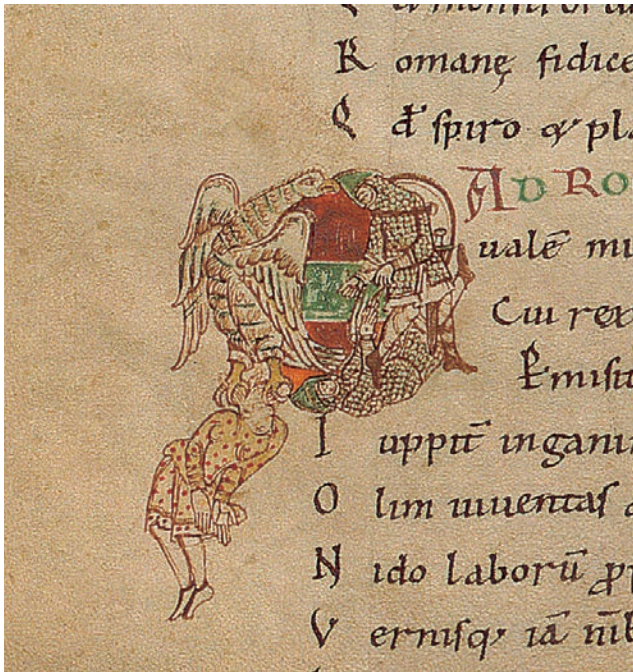 R omanę fidice
Q d̄ spiro & pla
AD RO
ualē mi
Cui rex
Pmisit
I uppit̄ in gani
O lim iuuentas
N ido laborū ꝓp
V ernisq; iā nīb